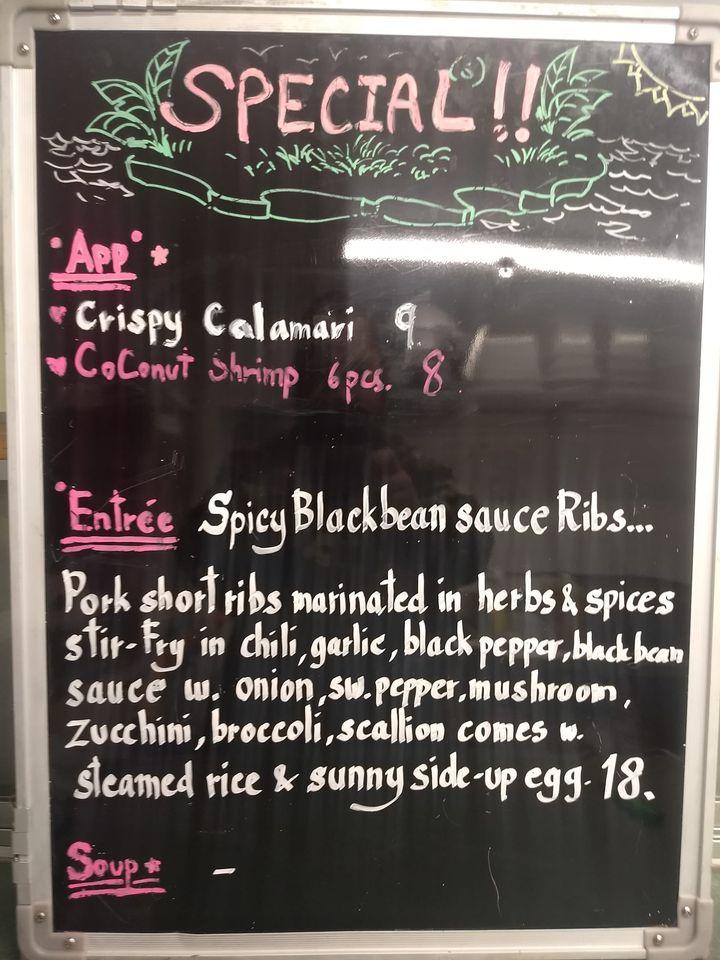 SPECIAL(s)!!
App *
Crispy Calamari 9
CoConut Shrimp 6pcs. 8
Entrée Spicy Blackbean sauce Ribs...
Pork short ribs marinated in herbs & spices
stir-Fry in chili, garlic, black pepper, black bean
sauce w. onion, sw. pepper, mushroom,
zucchini, broccoli, scallion comes w.
steamed rice & sunny side-up egg. 18.
Soup * -